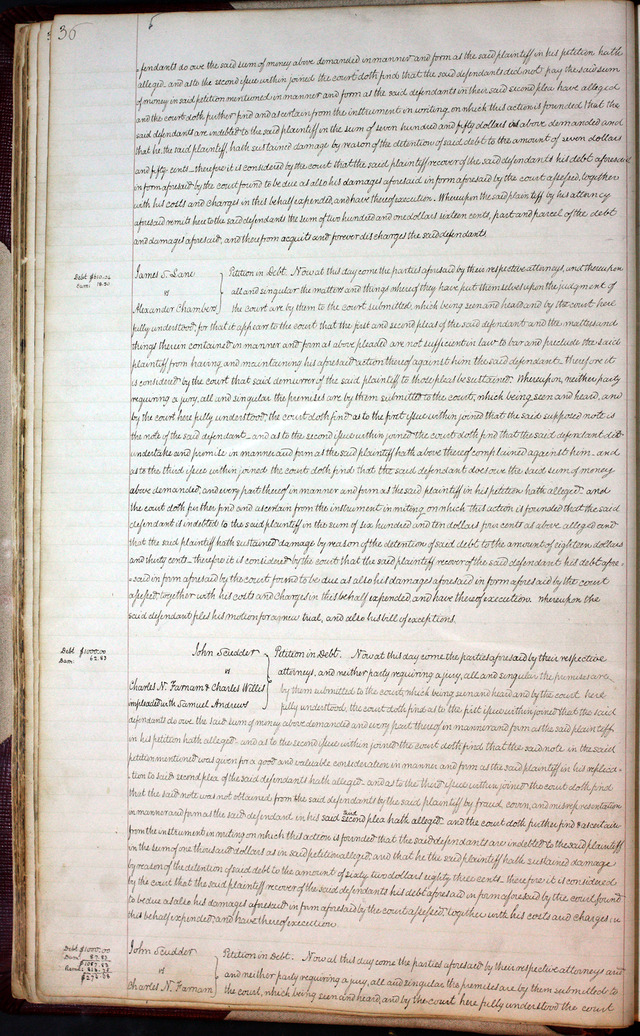 36
fendants do owe the said sum of money above demanded in manner and form as the said plaintiff in his petition hath
alleged. and as to the second issue within joined the court doth find that the said defendants did not pay the said sum
of money in said petition mentioned in manner and form as the said defendants in their said second plea have alleged
and the court doth further find and ascertain from the instrument in writing, on which this action is founded that the
said defendants are indebted to the said plaintiff in the sum of seven hundred and fifty dollars as above demanded and
that he, the said plaintiff, hath sustained damage by reason of the detention of said debt to the amount of seven dollars
and fifty cents_ therefore it is considered by the court that the said plaintiff recover of the said defendants his debt aforesaid
in form aforesaid by the court found to be due as also his damages aforesaid in form aforesaid by the court assessed, together
with his costs and charges in this behalf expended, and have thereof execution. Whereupon the said plaintiff by his attorney
aforesaid remits here to the said defendants the sum of two hundred and one dollars sixteen cents, part and parcel of the debt
and damages aforesaid, and therefrom acquits and forever discharges the said defendants.
Debt $610.04
Dam: 18.30
James S. Lane
vs
Alexander Chambers
Petition in Debt. Now at this day come the parties aforesaid by their respective attorneys, and thereupon
all and singular the matters and things whereof they have put themselves upon the judgment of
the court are by them to the court submitted, which being seen and heard and by the court here
fully understood, for that it appear to the court that the first and second pleas of the said defendant and the matters and
things therein contained in manner and form as above pleaded are not sufficient in law to bar and preclude the said
plaintiff from having and maintaining his aforesaid action thereof against him the said defendant_ therefore it
is considered by the court that said demurrer of the said plaintiff to those pleas be sustained. Whereupon, neither party
requiring a jury, all and singular the premises are by them submitted to the court, which being seen and heard, and
by the court here fully understood, the court doth find as to the first issue within joined that the said supposed note is
the note of the said defendant_ and as to the second issue within joined the court doth find that the said defendant did
undertake and promise in manner and form as the said plaintiff hath above thereof complained against him_ and
as to the third issue within joined the court doth find that the said defendant does owe the said sum of money
above demanded, and every part thereof in manner and form as the said plaintiff in his petition hath alleged. and
the court doth further find and ascertain from the instrument in writing, on which this action is founded that the said
defendant is indebted to the said plaintiff in the sum of six hundred and ten dollars four cents as above alleged and
that the said plaintiff hath sustained damage by reason of the detention of said debt to the amount of eighteen dollars
and thirty cents_ therefore it is considered by the court that the said plaintiff recover of the said defendant his debt afore-
-said in form aforesaid by the court found to be due as also his damages aforesaid in form aforesaid by the court
assessed, together with his costs and charges in this behalf expended, and have thereof execution. Whereupon the
said defendant files his motion for a new trial, and also his bill of exceptions.
Debt $1000.00
Dam: 62.83
John Scudder
vs
Charles N. Farnam & Charles Willis
impleaded with Samuel Andrews
Petition in Debt. Now at this day come the parties aforesaid by their respective
attorneys, and neither party requiring a jury, all and singular the premises are
by them submitted to the court, which being seen and heard and by the court here
fully understood, the court doth find as to the first issue within joined that the said
defendants do owe the said sum of money above demanded and every part thereof in manner and form as the said plaintiff
in his petition hath alleged. and as to the second issue within joined the court doth find that the said note in the said
petition mentioned was given for a good and valuable consideration in manner and form as the said plaintiff in his replica-
-tion to said second plea of the said defendants hath alleged. and as to the third issue within joined the court doth find
that the said note was not obtained from the said defendants by the said plaintiff by fraud, covin, and misrepresentation
in manner and form as the said defendant in his said third second plea hath alleged. and the court doth further find & ascertain
from the instrument in writing on which this action is founded that the said defendants are indebted to the said plaintiff
in the sum of one thousand dollars as in said petition alleged, and that he the said plaintiff hath sustained damage
by reason of the detention of said debt to the amount of sixty two dollars eighty three cents. therefore it is considered
by the court that the said plaintiff recover of the said defendants his debt aforesaid in form aforesaid by the court found
to be due as also his damages aforesaid in form aforesaid by the court assessed, together with his costs and charges in
this behalf expended, and have thereof execution
Debt $1000.00
John Scudder
vs
Charles N. Farnam
Petition in Debt. Now at this day come the parties aforesaid by their respective attorneys and
and neither party requiring a jury, all and singular the premises are by them submitted to
the court, which being seen and heard, and by the court here fully understood the court